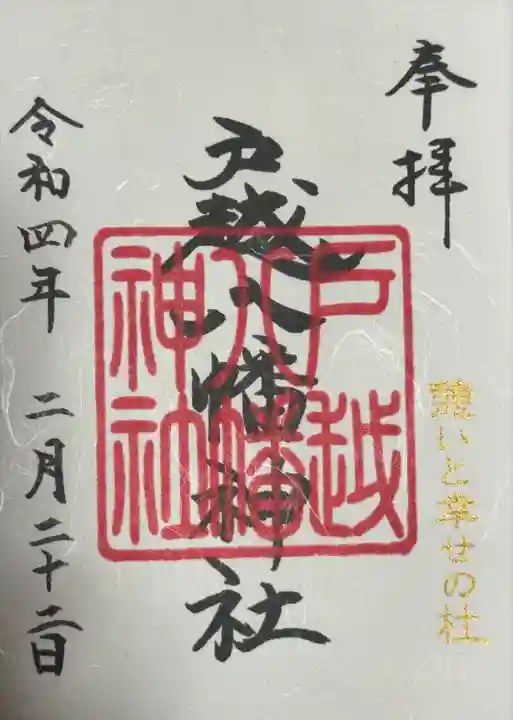 奉拝
憩いと幸せの社
戸越八幡神社
戸越
八幡
神社
令和四年 二月二十二日